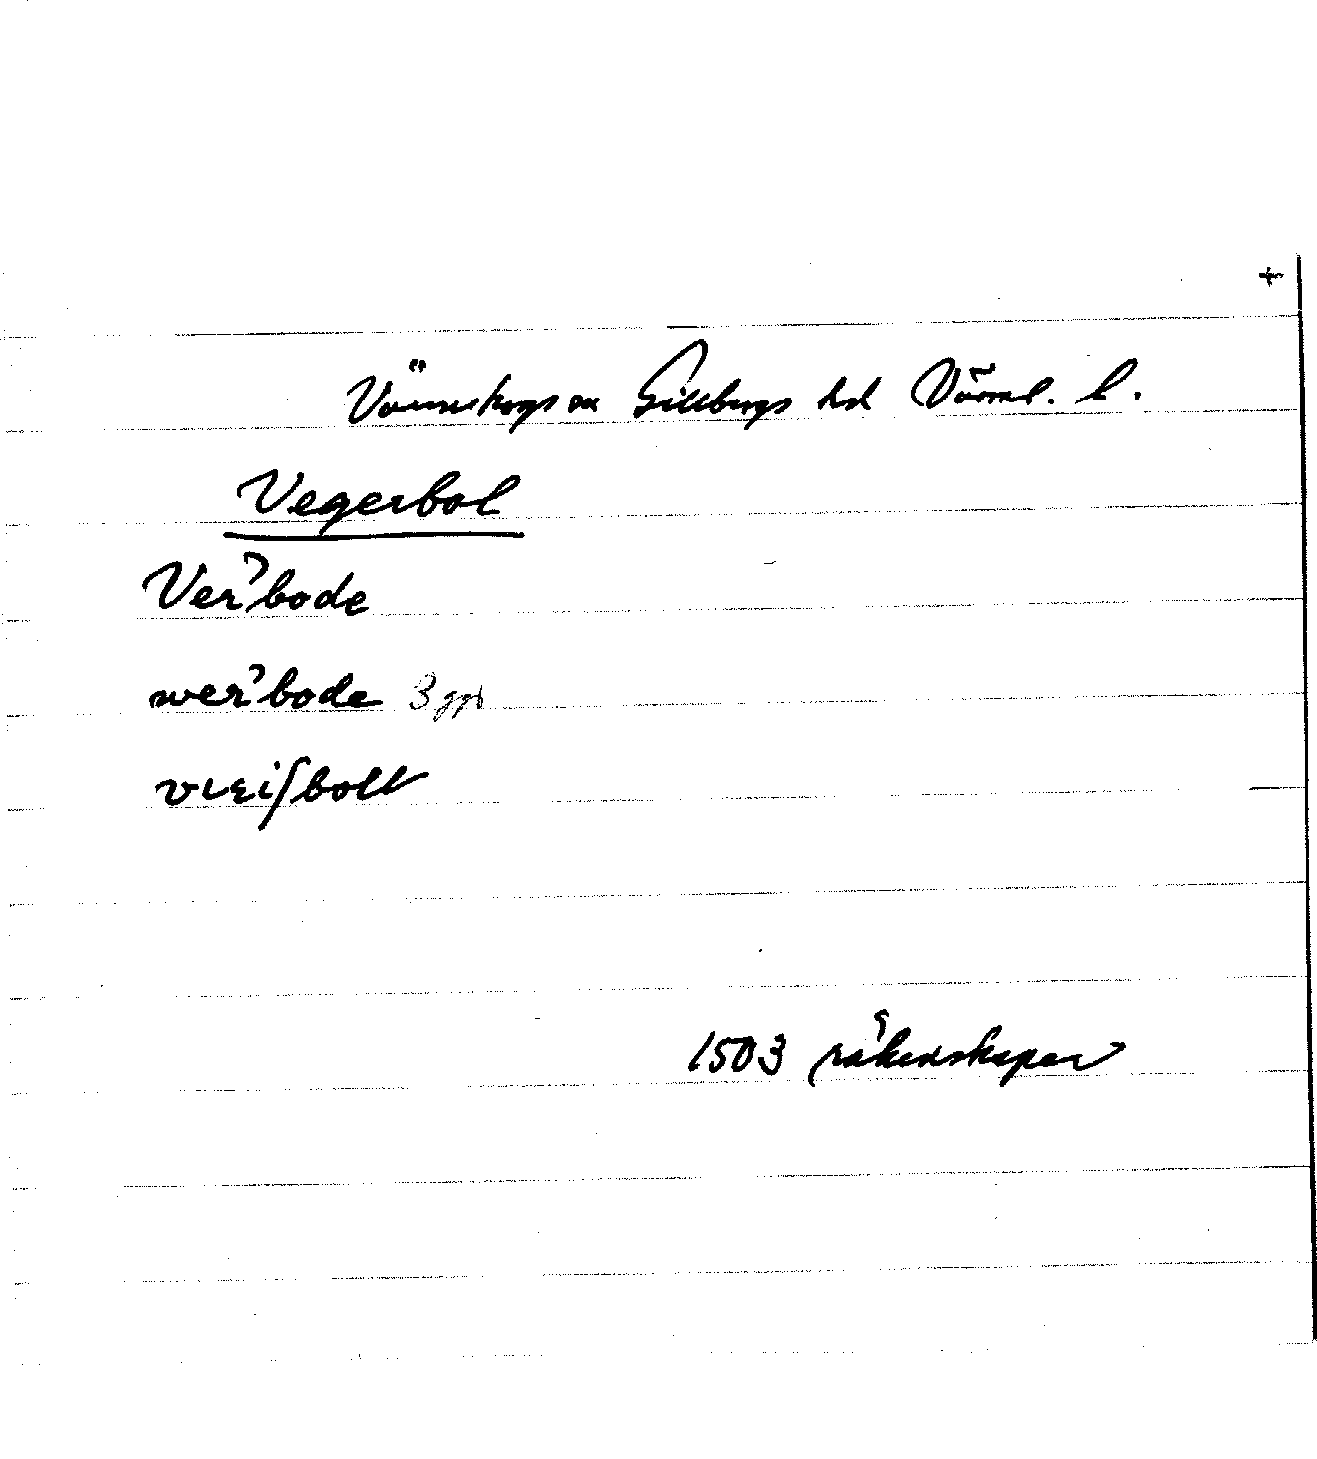 +
Värmskogs sn Gillbergs hd Värml. l.
Vegerbol
Ver⁾bode
wer⁾bode 3 ggr
1503 räkenskaper